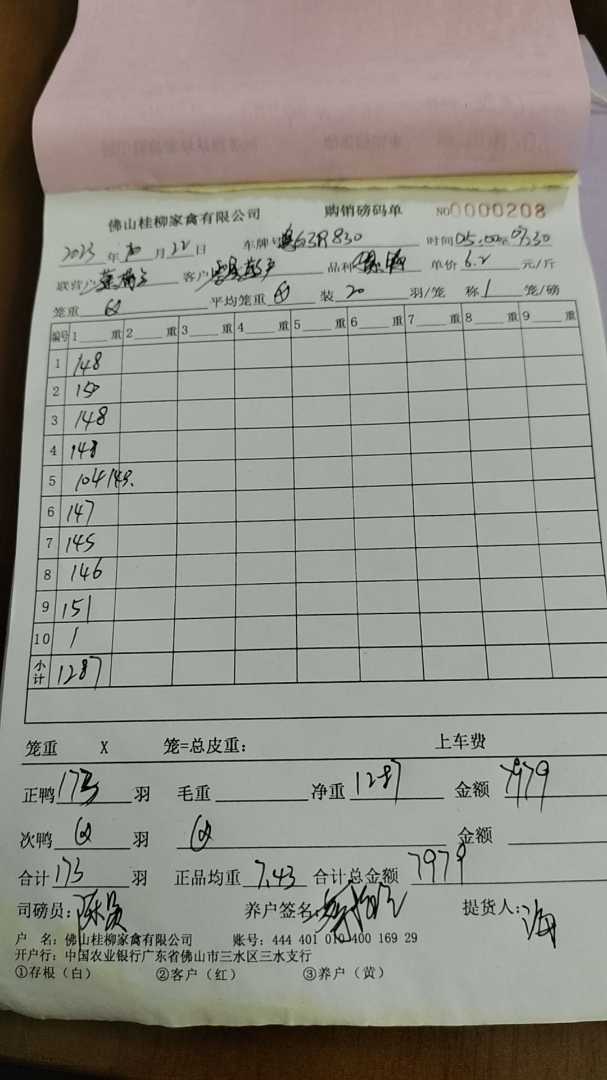 佛山桂柳家禽有限公司 购销磅码单 NO0000208
2023年10月22日 车牌号 830 时间05.00至07.30
联营户 客户 品种 单价6.2元/斤
笼重 平均笼重 装20羽/笼 称1笼/磅
编号 1 重 2 重 3 重 4 重 5 重 6 重 7 重 8 重 9 重
1 148
2 150
3 148
4 148
5 104 149.
6 147
7 145
8 146
9 151
10 1
小计 1287
笼重 X 笼=总皮重： 上车费
正鸭173羽 毛重 净重1287 金额7979
次鸭 羽 金额
合计173羽 正品均重7.43 合计总金额7979
司磅员： 养户签名： 提货人：海
户 名：佛山桂柳家禽有限公司 账号：444 401 010 400 169 29
开户行：中国农业银行广东省佛山市三水区三水支行
①存根（白） ②客户（红） ③养户（黄）